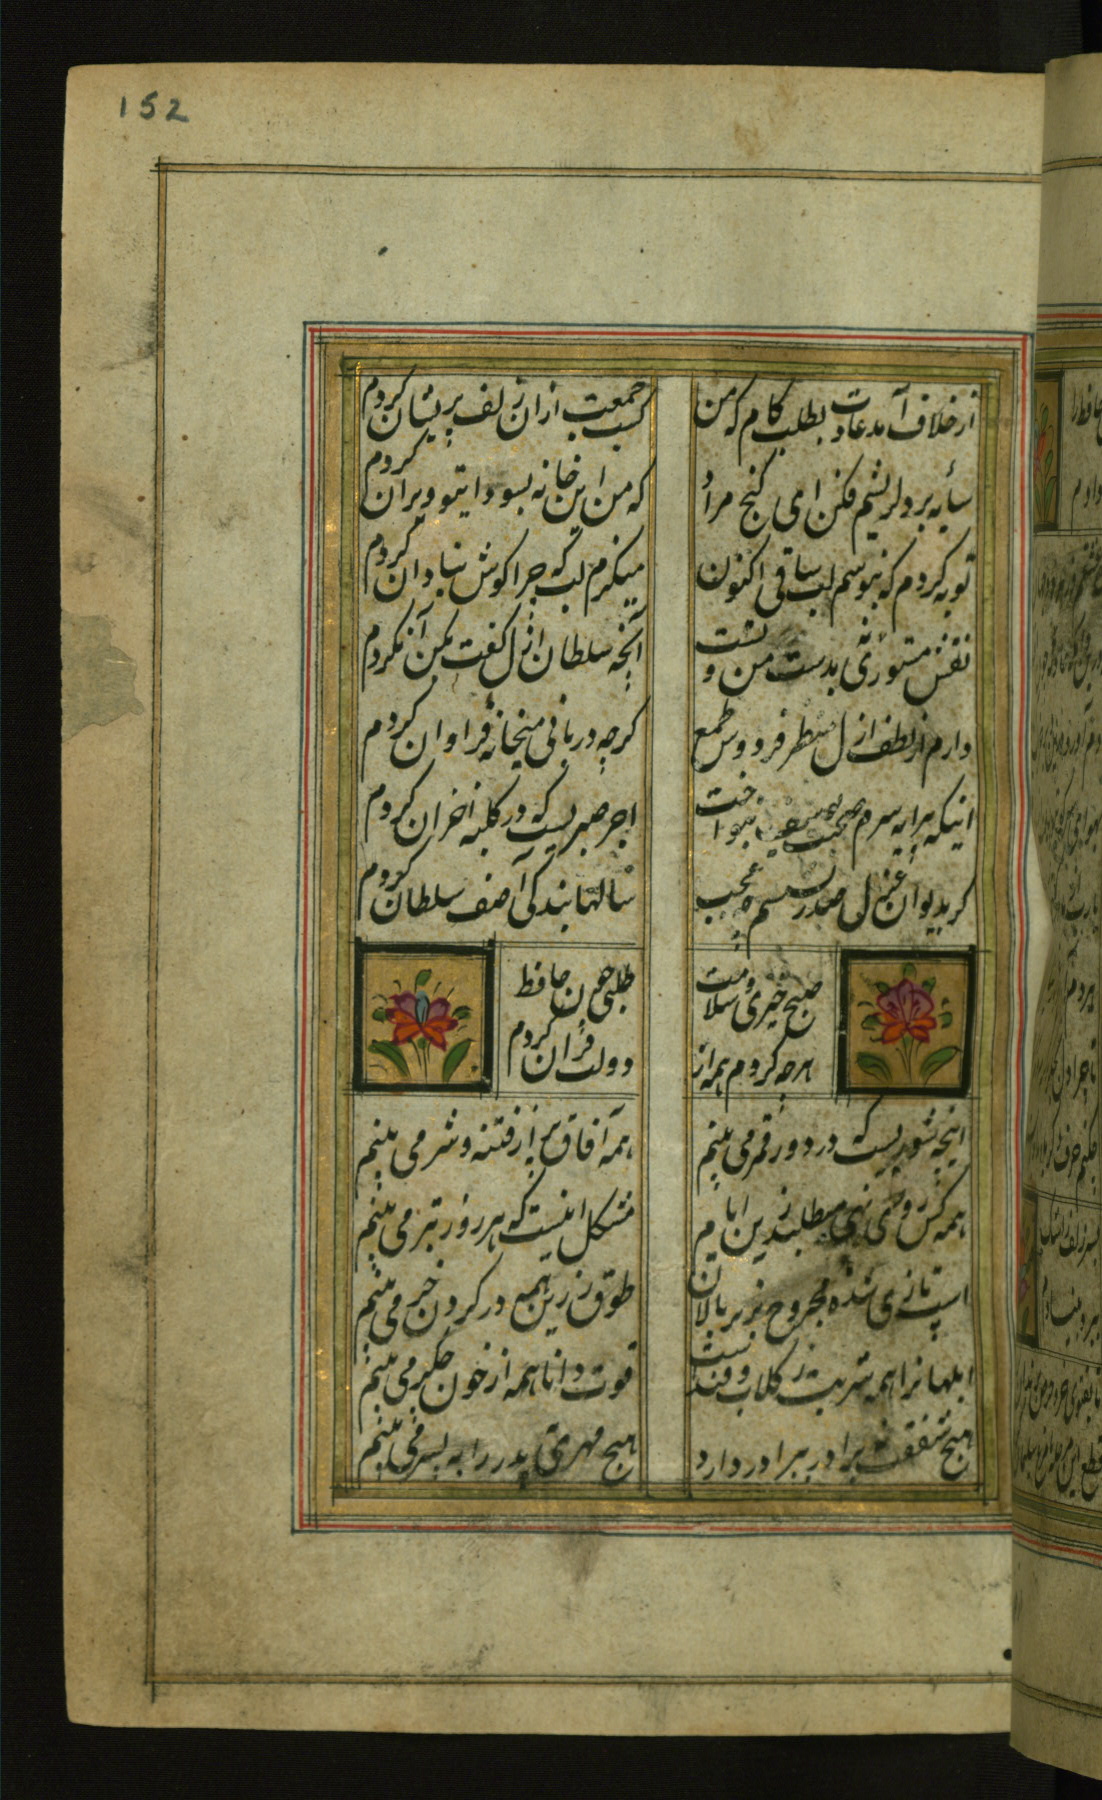 152
از خلاف آمد عادت بطلب کام که من
کسب جمعیت ازان زلف پریشان کردم
سایه بر دل ریشم فکن ای گنج مراد
که من این خانه بسودای تو ویران کردم
توبه کردم که نبوسم لب ساقی اکنون
میگزم لب که چرا گوش بنادان کردم
نقش مستوری بدست من و تست
آنچه سلطان ازل گفت بکن آن کردم
دارم از لطف ازل منظر فردوس طمع
گرچه دربانی میخانه فراوان کردم
اینکه پیرانه سرم صحبت یوسف بنواخت
اجر صبریست که در کلبه احزان کردم
گر بدیوان غزل صدر نشینم چه عجب
سالها بندگی آصف سلطان کردم
صبح خیزی و سلامت
طلبی چون حافظ
هرچه کردم همه از
دولت قرآن کردم
اینچه شوریست که در دور قمر می بینم
همه آفاق پر از فتنه و شر می بینم
همه کس روز بهی میطلبند از ایام
مشکل اینست که هر روز بتر می بینم
اسب تازی شده مجروح بزیر پالان
طوق زرین همه در گردن خر می بینم
ابلهانرا همه شربت ز گلاب و قندست
قوت دانا همه از خون جگر می بینم
هیچ شفقت برادر ببرادر دارد
هیچ مهری پدر را به پسر می بینم